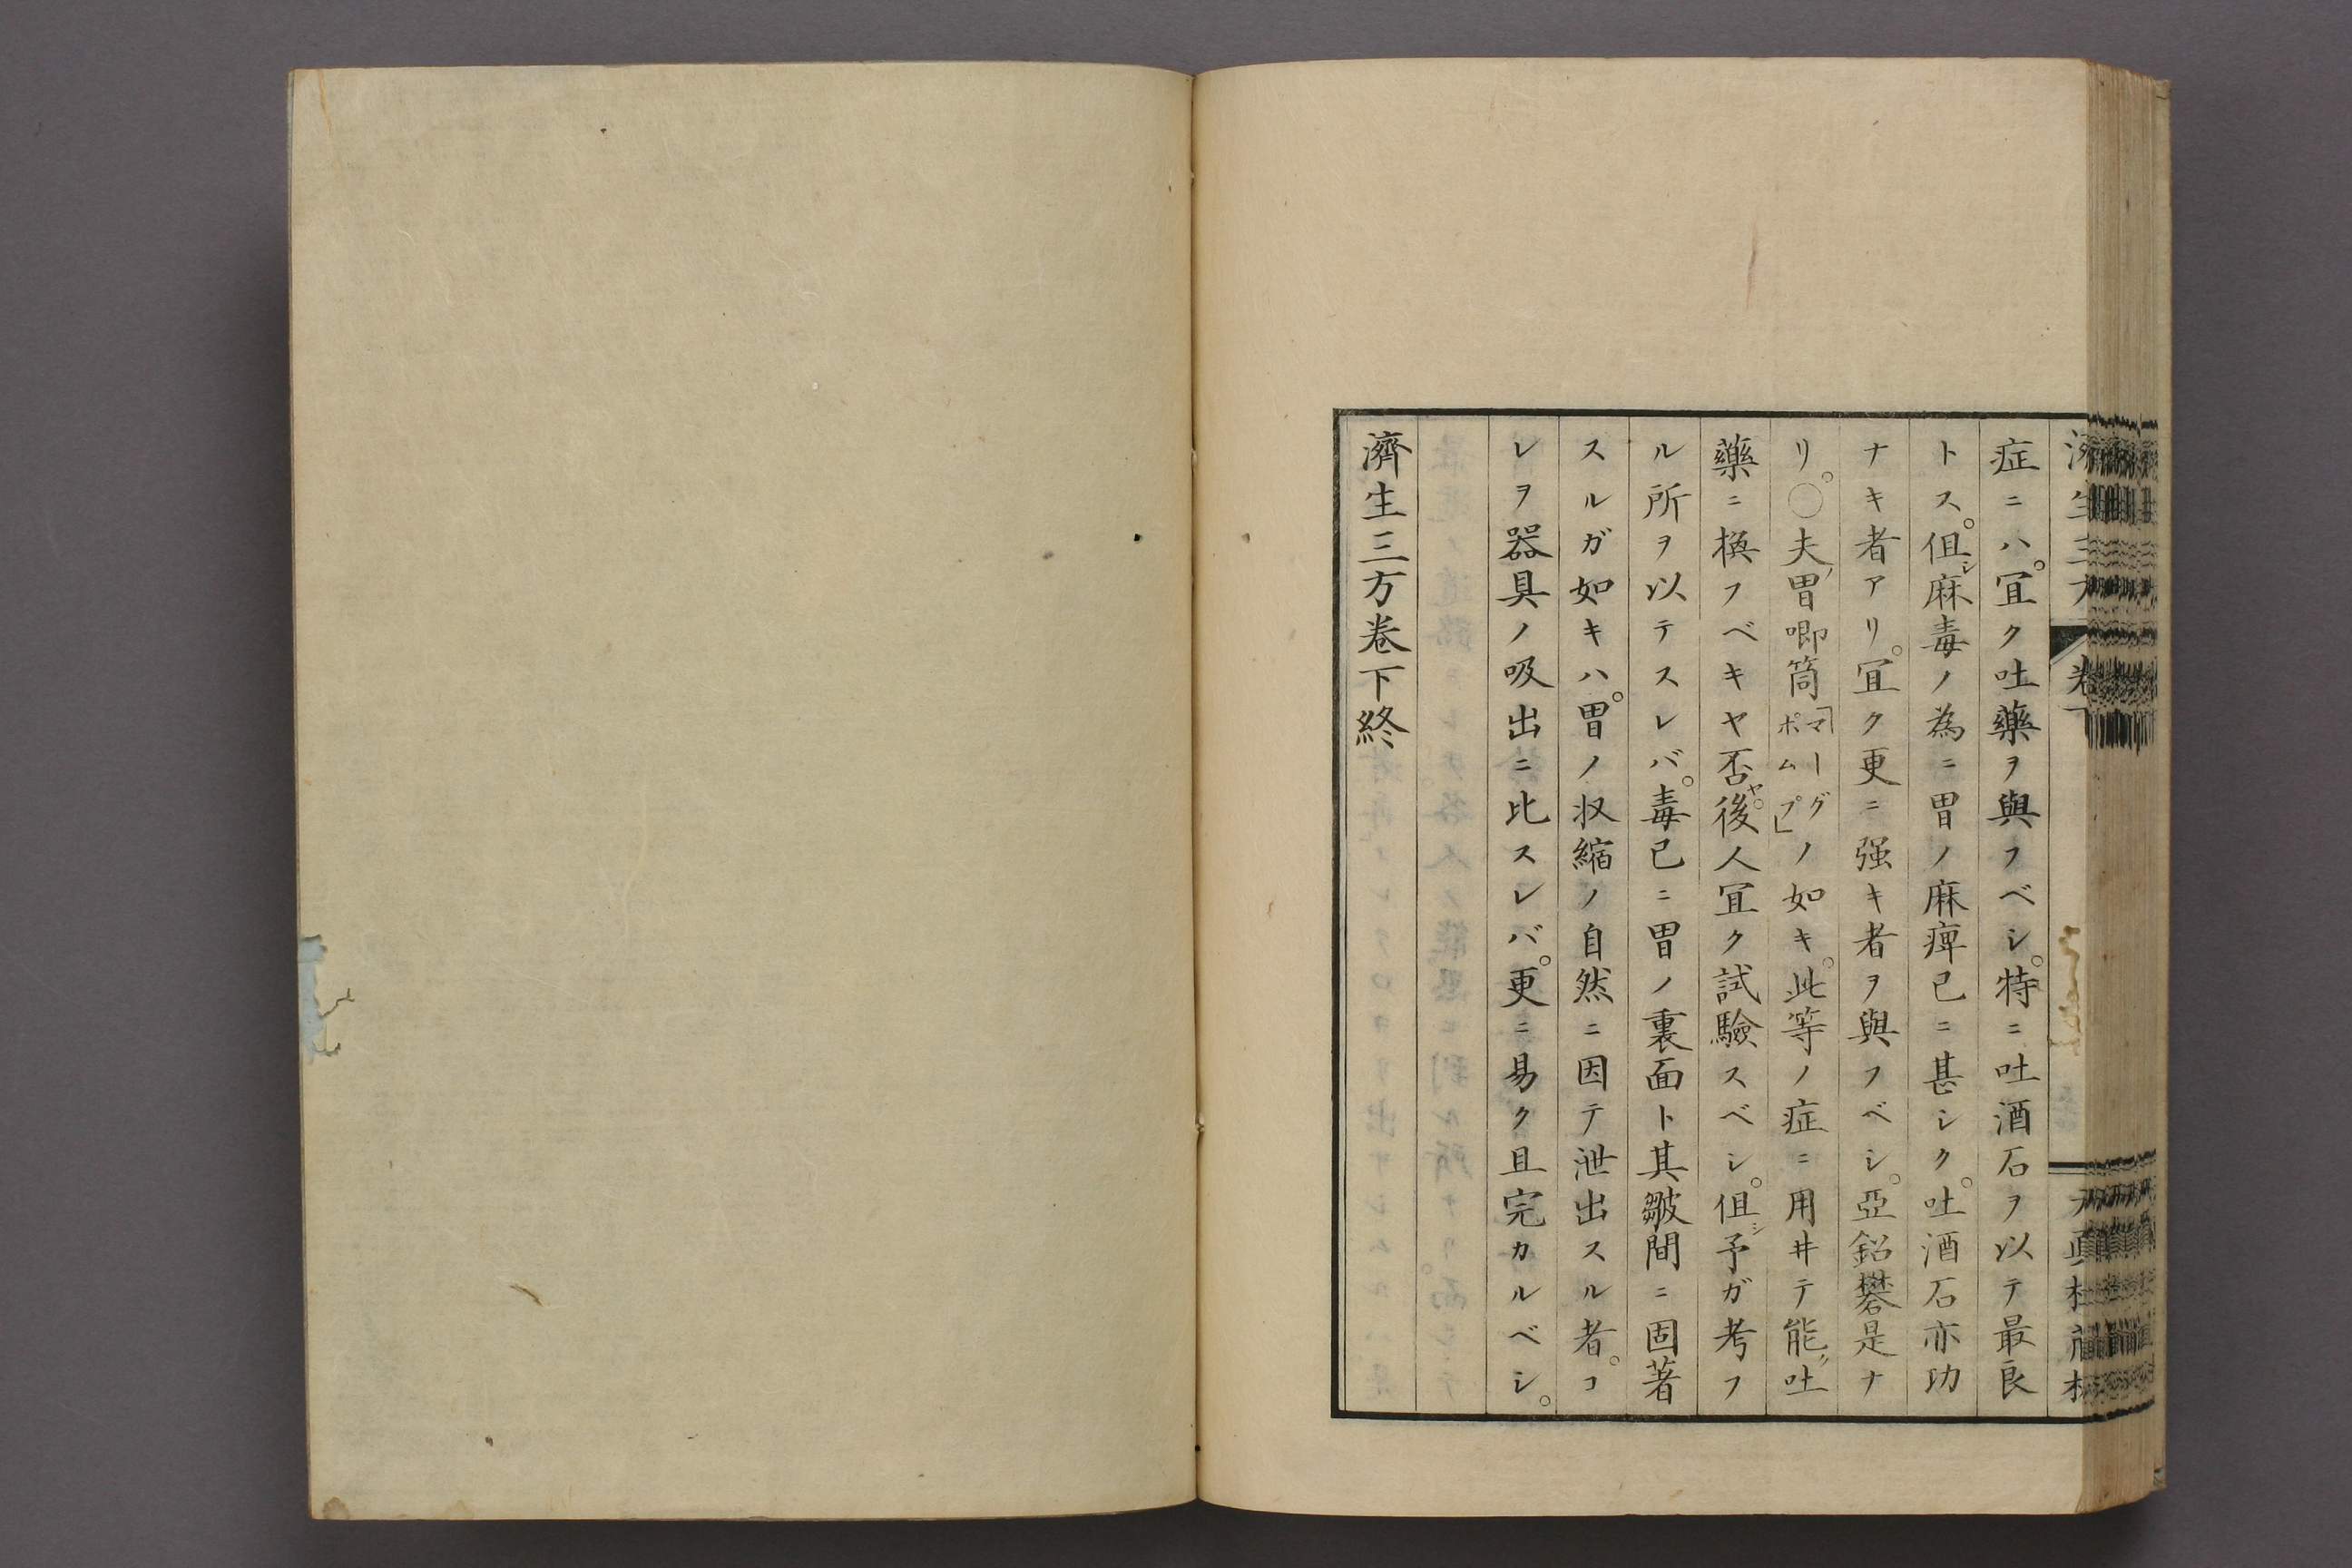 症ニハ。宜ク吐藥ヲ與フベシ。特ニ吐酒石ヲ以テ最良
トス。伹シ麻毒ノ為ニ胃ノ麻痺已ニ甚シク。吐酒石亦功
ナキ者アリ。宜ク更ニ强キ者ヲ與フベシ。亞鉛礬是ナ
リ。〇夫ノ胃喞筒「マーグポムプ」ノ如キ。此等ノ症ニ用井テ能ク吐
藥ニ換フベキヤ否ヤ。後人宜ク試驗スベシ。伹シ予ガ考フ
ル所ヲ以テスレバ。毒已ニ胃ノ裏面ト其皺間ニ固著
スルガ如キハ。胃ノ収縮ノ自然ニ因テ泄出スル者。コ
レヲ器具ノ吸出ニ比スレバ。更ニ易ク且完カルベシ。
濟生三方卷下終